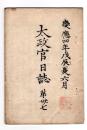 慶應四年戊辰夏六月
太政官日誌
第卅七